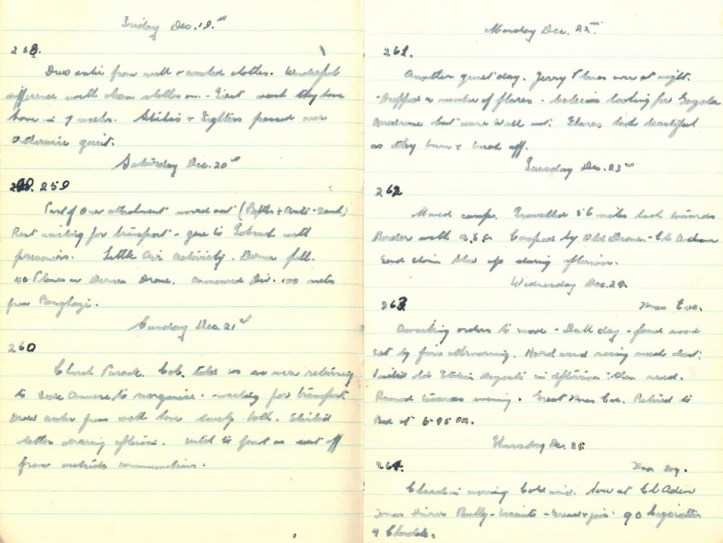 Friday Dec. 19th
258.
Drew water from well & washed clothes. Wonderful
difference with clean clothes on - First wash they have
had in 7 weeks. & fighters passed over
otherwise quiet.
Saturday Dec. 20th
259
Part of our attachment moved out (Anti-Tank)
Rest waiting for transport - gone to Tobruk with
prisoners. Little air activity. Derna fell.
Planes on Derna Drome. Armoured Div. 100 miles
from Benghazi.
Sunday Dec. 21st
260
Church Parade. C.O. told us we were returning
to to reorganise - waiting for transport
Drew water from well have lovely bath.
letter during afternoon. to post as cut off
from outside communication.
Monday Dec. 22nd
261.
Another quiet day. Jerry Planes over at night.
Dropped a number of flares - believe looking for
aerodrome but were well out. Flares look beautiful
as they burn &
Tuesday Dec. 23rd
262
Moved camp. Travelled 56 miles back towards
Border with Camped by Old Drome - El Aden
Sand storm blew up during afternoon.
Wednesday Dec. 24
263 Xmas Eve.
Awaiting orders to move - Dull day - found wood
sat by fire all morning. Hard wind raising much dust.
Visited old Italian in afternoon then read.
Rained towards evening. Great Xmas Eve. Retired to
Bed at
Thursday Dec 25
264. Xmas Day.
Church in morning Cold wind. Now at El Aden
Xmas Dinner Bully - biscuits - 90 Cigarettes
& Chocolate.